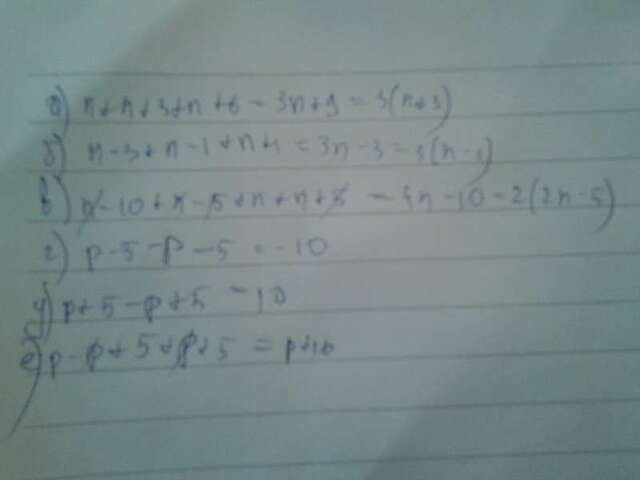 а) n+n+3+n+6 = 3n+9 = 3(n+3)
б) n-3+n-1+n+1 = 3n-3 = 3(n-1)
в) n-10+n-5+n+n+5 = 4n-10-2(2n-5)
г) p-5-p-5 = -10
д) p+5-p+5 = 10
е) p-p+5+p+5 = p+10